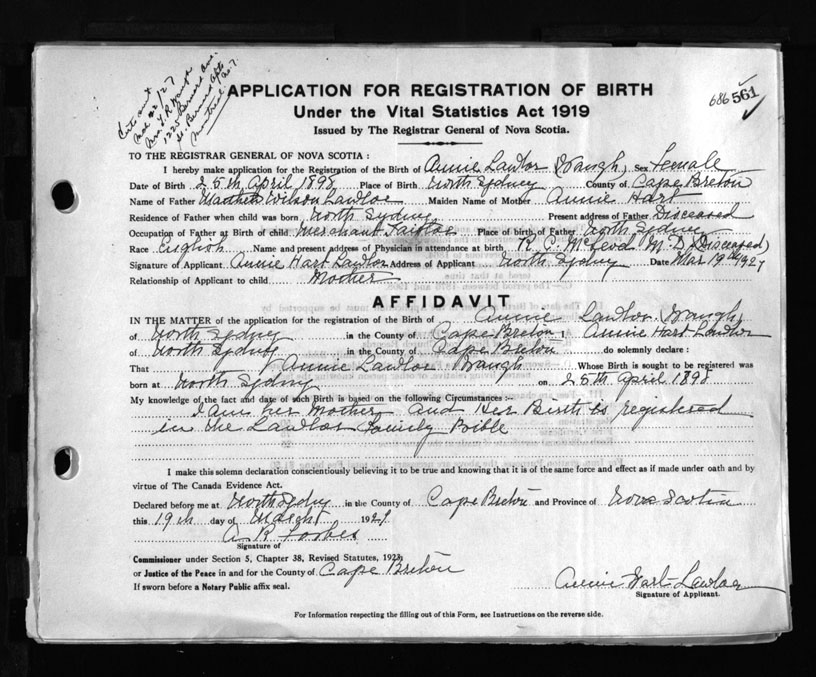 Mar 22/27
Mrs. T. R. Waugh
1225 Bernard Ave.
St. Bernard Apts
Montreal
686 561
APPLICATION FOR REGISTRATION OF BIRTH
Under the Vital Statistics Act 1919
Issued by The Registrar General of Nova Scotia.
TO THE REGISTRAR GENERAL OF NOVA SCOTIA:
I hereby make application for the Registration of the Birth of Annie Lawlor (Waugh) Sex Female
Date of Birth 25th April 1898 Place of Birth North Sydney County of Cape Breton
Name of Father Matthew Wilson Lawlor Maiden Name of Mother Annie Hart
Residence of Father when child was born North Sydney Present address of Father Disceased
Occupation of Father at Birth of child Merchant Tailor Place of Birth of Father North Sydney
Race English Name and present address of Physician in attendance at birth R. C. McLeod M.D. (Disceased)
Signature of Applicant Annie Hart Lawlor Address of Applicant North Sydney Date Mar 19th 1927
Relationship of Applicant to child Mother
AFFIDAVIT
IN THE MATTER of the application for the registration of the Birth of Annie Lawlor (Waugh)
of North Sydney in the County of Cape Breton I Annie Hart Lawlor
of North Sydney in the County of Cape Breton do solemnly declare:
That Annie Lawlor Waugh Whose Birth is sought to be registered was
born at North Sydney on 25th April 1898
My knowledge of the fact and date of such Birth is based on the following Circumstances:-
I am her Mother and Her Birth is registered
in the Lawlor Family Bible
I make this solemn declaration conscientiously believing it to be true and knowing that it is of the same force and effect as if made under oath and by
virtue of The Canada Evidence Act.
Declared before me at North Sydney in the County of Cape Breton and Province of Nova Scotia
this 19th day of March 1927
A R Forbes
Signature of
Commissioner under Section 5, Chapter 38, Revised Statutes, 1923,
or Justice of the Peace in and for the County of Cape Breton
If sworn before a Notary Public affix seal.
Annie Hart Lawlor
Signature of Applicant.
For Information respecting the filling out of this Form, see Instructions on the reverse side.